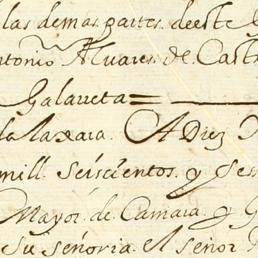 las demas partes deeste
Antonio Alvares de Cast
Galarreta =
la laxara. A Diez
mill. Seiscientos. y ses
Mayor de Camara. y G
Su Señoria. el señor